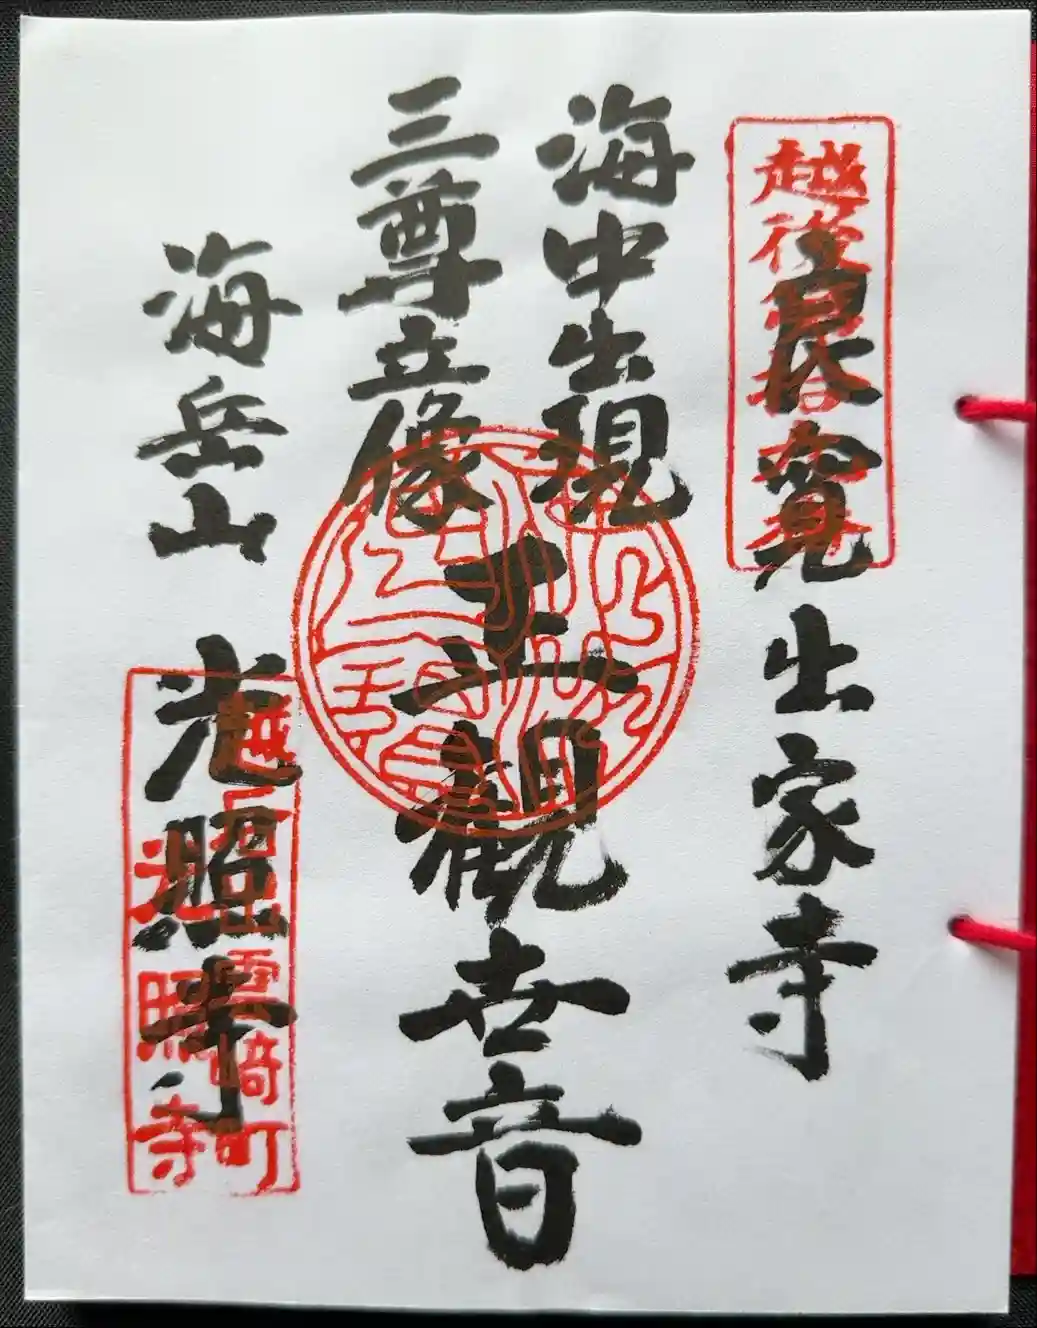 越後
良寛出家寺
海中出現
三尊立像
正觀世音
海岳山 光照寺
越 出雲崎町
光照寺